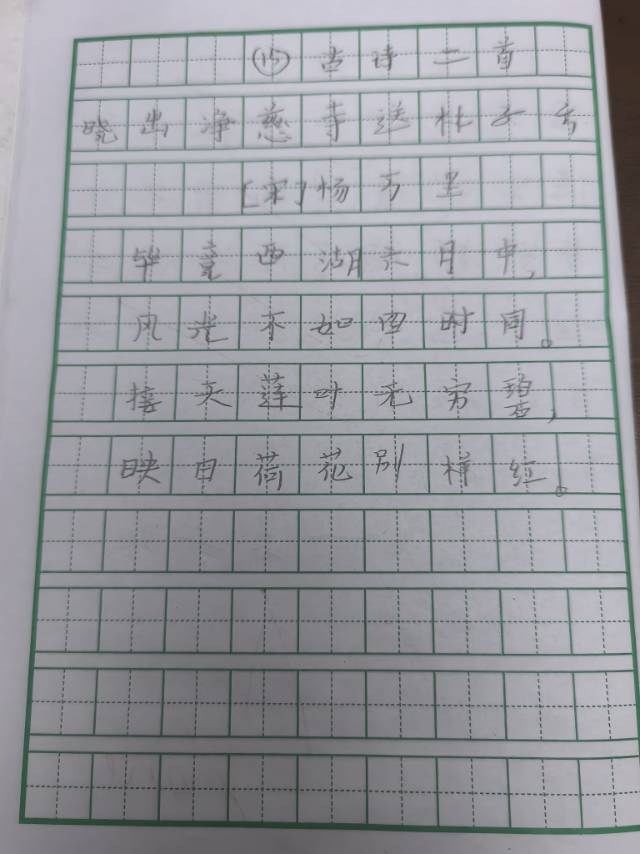 ⑮古诗二首
晓出净慈寺送林子方
[宋]杨万里
毕竟西湖六月中，
风光不如四时同。
接天莲叶无穷碧，
映日荷花别样红。